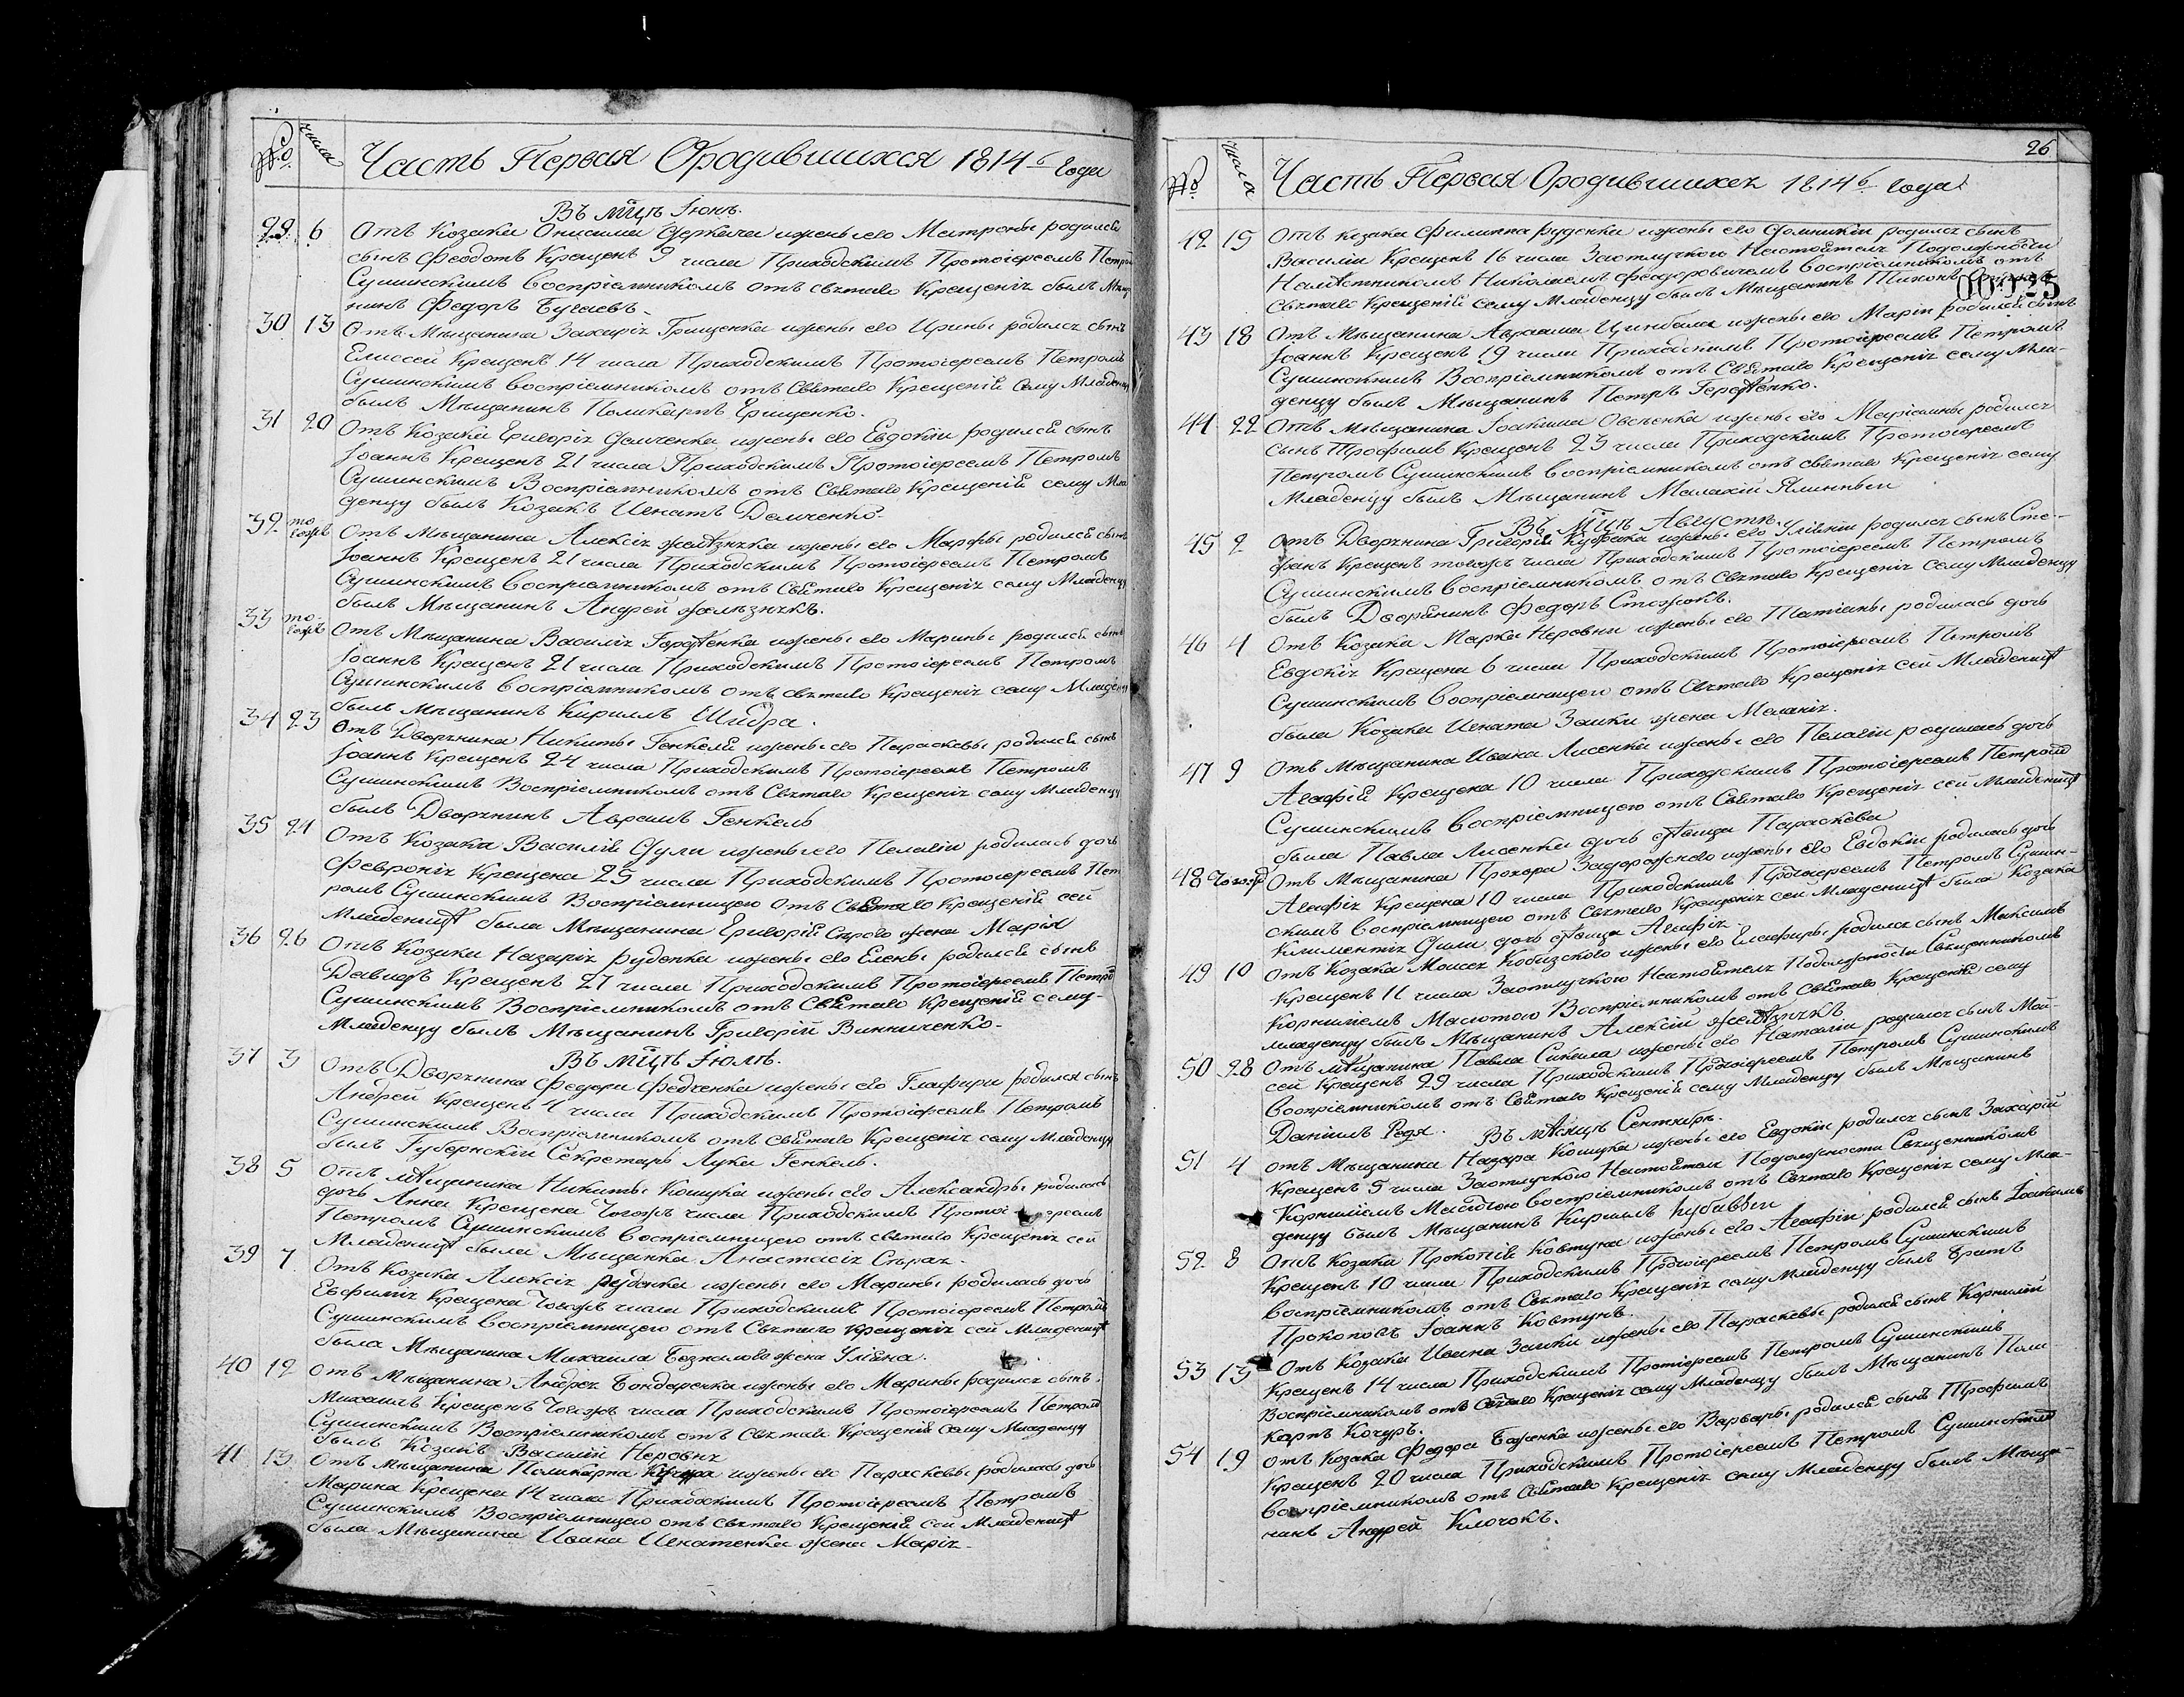 № числа Часть Первая Ородившихся 1814г Года
Въ мцѣ Іюнѣ.
29 6 Отъ Козака Онисима Деркача ижены его Матроны родился
сынъ Феодотъ Крещенъ 9 числа Приходскимъ Протоіереемъ Петро
Сушинскимъ Воспріемникомъ отъ святаго Крещенія былъ Мѣща
нинъ Федоръ Бугаевъ.
30 13 Отъ Мѣщанина Захарія Грищенка ижены его Ирины родился сынъ
Елиссей Крещенъ 14 числа Приходскимъ Протоіереемъ Петромъ
Сушинскимъ Воспріемникомъ отъ Святаго Крещенія сему Младенцу
былъ Мѣщанинъ Поликарпъ Грищенко.
31 20 Отъ Козака Григорія Демченка ижены его Евдокіи родился сынъ
Іоаннъ Крещенъ 21 числа Приходскимъ Протоіереемъ Петромъ
Сушинскимъ Воспріемникомъ отъ Святаго Крещенія сему Мла
денцу былъ Козакъ Игнатъ Демченко.
32 то гожъ Отъ Мѣщанина Алексія Желѣзняка ижены его Марфы родился сынъ
Іоаннъ Крещенъ 21 числа Приходскимъ Протоіереемъ Петромъ
Сушинскимъ Воспріемникомъ отъ Святаго Крещенія сему Младенцу
былъ Мѣщанинъ Андрей Желѣзнякъ.
33 то гожъ Отъ Мѣщанина Василія Гордѣенка ижены его Марины родился сынъ
Іоаннъ Крещенъ 21 числа Приходскимъ Протоіереемъ Петромъ
Сушинскимъ Воспріемникомъ отъ святаго Крещенія сему Младенцу
былъ Мѣщанинъ Кириллъ Шидра.
34 23 Отъ Дворянина Никиты Генкеля ижены его Параскевы родился сынъ
Іоаннъ Крещенъ 24 числа Приходскимъ Протоіереемъ Петромъ
Сушинскимъ Воспріемникомъ отъ Святаго Крещенія сему Младенцу
былъ Дворянинъ Авраамъ Генкель
35 24 Отъ Козака Василія Дули ижены его Пелагіи родилась дочь
Февронія Крещена 25 числа Приходскимъ Протоіереемъ Пет
ромъ Сушинскимъ Воспріемницею отъ Святаго Крещенія сей
Младеницѣ была Мѣщанина Григорія Сѣраго жена Марія
36 26 Отъ Козака Назарія Руденка ижены его Елены родился сынъ
Давидъ Крещенъ 27 числа Приходскимъ Протоіереемъ Петро
Сушинскимъ Воспріемникомъ отъ Святаго Крещенія сему-
Младенцу былъ Мѣщанинъ Григорій Винниченко.
Въ мцѣ Іюлѣ.
37 3 Отъ Дворянина Федора Федченка ижены его Глафири родился сынъ
Андрей Крещенъ 4 числа Приходскимъ Протоіереемъ Петромъ
Сушинскимъ Воспріемникомъ отъ святаго Крещенія сему Младенцу
былъ Губернскій Секретарь Лука Генкель.
38 5 Отъ мѣщанина Никиты Кошука ижены его Александры родилась
дочь Анна Крещена тогожъ числа Приходскимъ Протоіереемъ
Петромъ Сушинскимъ Воспріемницею отъ святаго Крещенія сей
Младеницѣ была Мѣщанка Анастасія Сѣрая.
39 7 Отъ Козака Алексія Руденка ижены его Марины родилась дочь
Евфимія Крещена тогожъ числа Приходскимъ Протоіереемъ Петромъ
Сушинскимъ Воспріемницею отъ Святаго Крещенія сей Младеницѣ
была Мѣщанина Михаила Безжилого жена Уліяна.
40 12 Отъ Мѣщанина Андрея Бондаренка ижены его Марины родился сынъ
Михаилъ Крещенъ тогожъ числа Приходскимъ Протоіереемъ Петромъ
Сушинскимъ Воспріемникомъ отъ Святаго Крещенія сему Младенцу
былъ Козакъ Василій Неровня
41 13 Отъ Мѣщанина Поликарпа Кочура ижены его Параскевы родилась дочь
Марина Крещена 14 числа Приходскимъ Протоіереемъ Петромъ
Сушинскимъ Воспріемницею отъ святаго Крещенія сей Младеницѣ
была Мѣщанина Ивана Игнатенка жена Марія-
26
№ числа Часть Первая Ородившихся 1814г Года
42 15 Отъ козака Филиппа Руденка ижены его Домникіи родился сынъ
Василій Крещенъ 16 числа Златоустого Настоятеля Подолжности
Намѣстникомъ Николаемъ Федоровичемъ Воспріемникомъ отъ
Святаго Крещенія сему Младенцу былъ Мѣщанинъ Тихонъ
00025
43 18 Отъ Мѣщанина Авраама Цимбала ижены его Маріи родился сынъ
Іоаннъ Крещенъ 19 числа Приходскимъ Протоіереемъ Петромъ
Сушинскимъ Воспріемникомъ отъ Святаго Крещенія сему Мла-
денцу былъ Мѣщанинъ Петръ Гордѣенко.
44 22 Отъ Мѣщанина Іоакима Овсѣенка ижены его Маріанны родился
сынъ Трофимъ Крещенъ 23 числа Приходскимъ Протоіереемъ
Петромъ Сушинскимъ Воспріемникомъ отъ святаго Крещенія сему
Младенцу былъ Мѣщанинъ Малахій
Въ Мцѣ Августѣ.
45 2 Отъ Дворянина Григорія ижены его Уліяніи родился сынъ Сте-
фанъ Крещенъ тогожъ числа Приходскимъ Протоіереемъ Петромъ
Сушинскимъ Воспріемникомъ отъ святаго Крещенія сему Младенцу
былъ Дворянинъ Федоръ Стожокъ.
46 4 Отъ Козака Марка Неровни ижены его Татіаны родилась дочь
Евдокія Крещена 6 числа Приходскимъ Протоіереемъ Петромъ
Сушинскимъ Воспріемницею отъ Святаго Крещенія сей Младеницѣ
была Козака Игната Заики жена Меланія.
47 9 Отъ Мѣщанина Ивана Лисенка ижены его Пелагіи родилась дочь
Агафія Крещена 10 числа Приходскимъ Протоіереемъ Петромъ
Сушинскимъ Воспріемницею отъ Святаго Крещенія сей Младеницѣ
была Павла Лисенка дочь дѣвица Параскева
48 тогожъ Отъ Мѣщанина Прохора Задорожнего ижены его Евдокіи родилась дочь
Агафія Крещена 10 числа Приходскимъ Протоіереемъ Петромъ Сушин-
скимъ Воспріемницею отъ Святаго Крещенія сей Младеницѣ была Козака
Климентія дочь дѣвица Агафія
49 10 Отъ Козака Моисея Кобизского ижены его Гласфиры родился сынъ Максимъ
Крещенъ 11 числа Златоустого Настоятеля Подолжности Священникомъ
Корниліемъ Масютою Воспріемникомъ отъ Святаго Крещенія сему
младенцу былъ Мѣщанинъ Алексій Желѣзнякъ
50 28 Отъ Мѣщанина Павла Сикала ижены его Наталіи родился сынъ Мои-
сей Крещенъ 29 числа Приходскимъ Протоіереемъ Петромъ Сушинскимъ
Воспріемникомъ отъ Святаго Крещенія сему Младенцу былъ Мѣщанинъ
Даніилъ Редя. Въ мѣсяцѣ Сентябрѣ.
51 4 Отъ Мѣщанина Назара Кошука ижены его Евдокіи родился сынъ Захарій
Крещенъ 5 числа Златоустого Настоятеля Подолжности Священникомъ
Корниліемъ Масютою Воспріемникомъ отъ Святаго Крещенія сему Мла-
денцу былъ Мѣщанинъ Кирилъ
52 8 Отъ Козака Прокопія Ковтуна ижены его Агафіи родился сынъ Іоакимъ
Крещенъ 10 числа Приходскимъ Протоіереемъ Петромъ Сушинскимъ
Воспріемникомъ отъ Святаго Крещенія сему Младенцу былъ братъ
Прокоповъ Іоаннъ Ковтунъ.
53 13 Отъ Козака Ивана Заики ижены его Параскевы родился сынъ Корнилій
Крещенъ 14 числа Приходскимъ Протоіереемъ Петромъ Сушинскимъ
Воспріемникомъ отъ Святаго Крещенія сему Младенцу былъ Мѣщанинъ Поли
карпъ Кочуръ.
54 19 Отъ Козака Федора Баженка ижены его Варвары родился сынъ Трофимъ
Крещенъ 20 числа Приходскимъ Протоіереемъ Петромъ Сушинскимъ
Воспріемникомъ отъ Святаго Крещенія сему Младенцу былъ Мѣща-
нинъ Андрей Клочокъ.